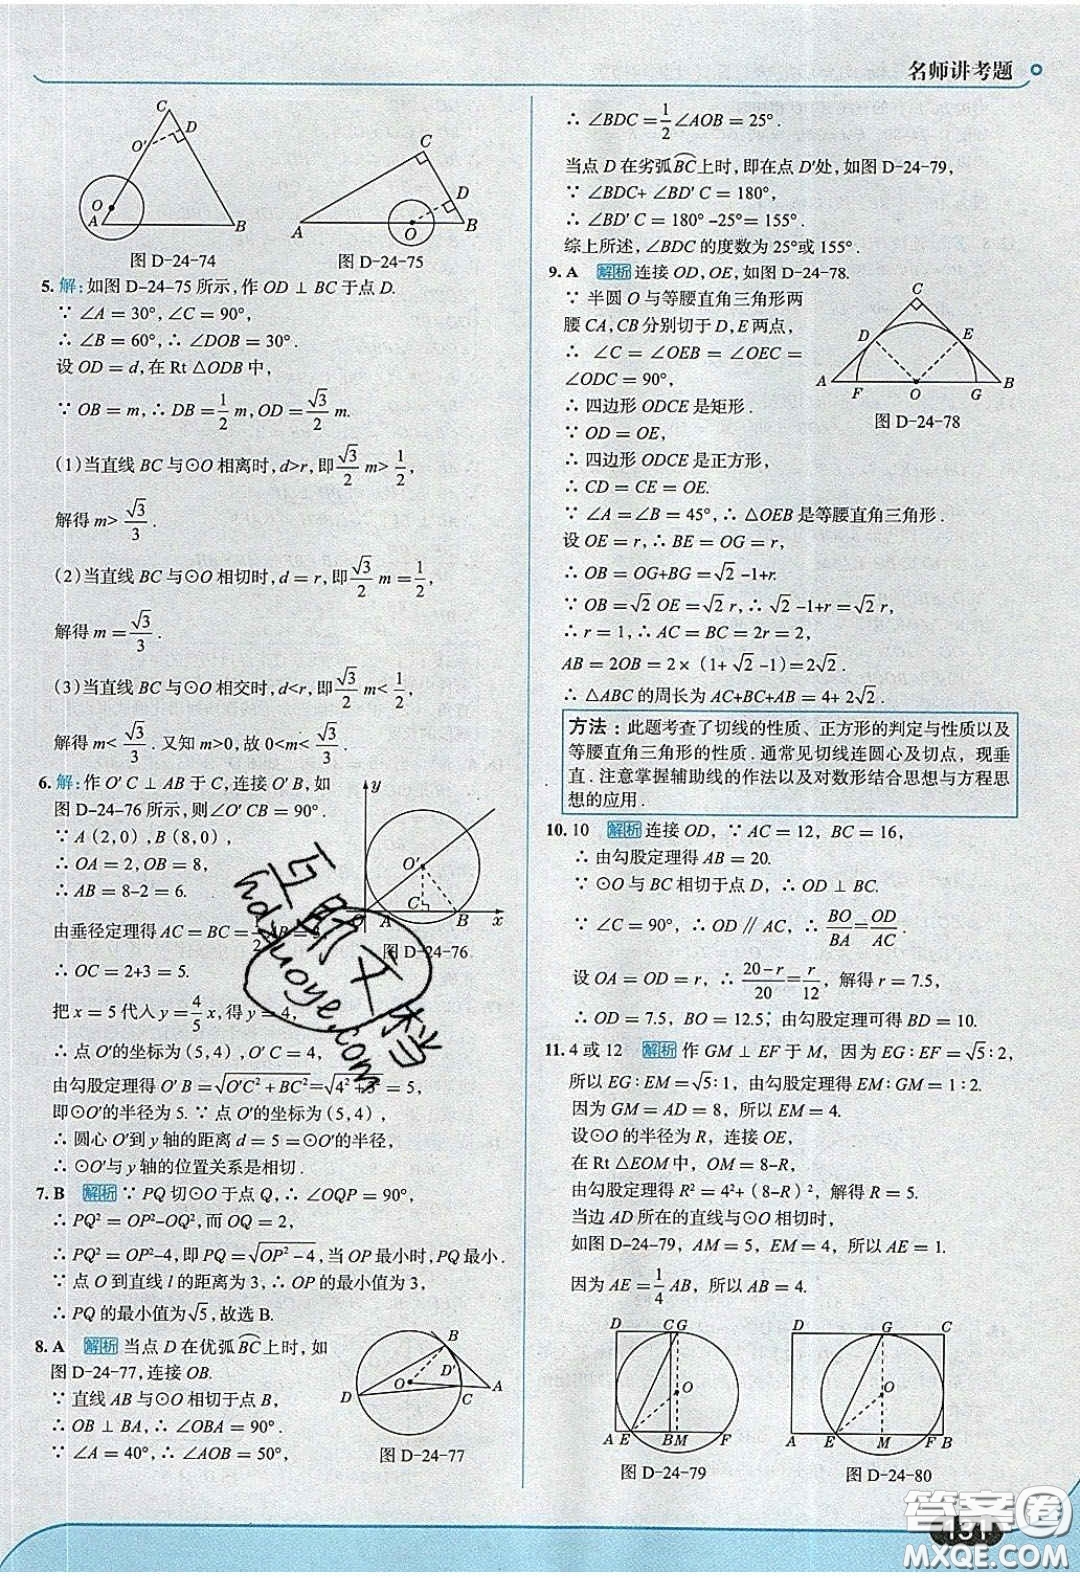 名师讲考题
C
O′
D
O
A
B
图 D-24-74
C
D
A
O
B
图 D-24-75
5. 解:如图 D-24-75 所示,作 OD ⊥ BC 于点 D.
∵ ∠A = 30°, ∠C = 90°,
∴ ∠B = 60°, ∴ ∠DOB = 30°.
设 OD = d,在 Rt △ODB 中,
∵ OB = m, ∴ DB = 1/2 m, OD = √3/2 m.
(1)当直线 BC 与⊙O 相离时, d>r, 即 √3/2 m> 1/2,
解得 m> √3/3 .
(2)当直线 BC 与⊙O 相切时, d = r, 即 √3/2 m = 1/2,
解得 m = √3/3 .
(3)当直线 BC 与⊙O 相交时, d<r, 即 √3/2 m< 1/2,
解得 m< √3/3 . 又知 m>0, 故 0<m< √3/3 .
6. 解:作 O′C ⊥ AB 于 C,连接 O′B, 如
图 D-24-76 所示,则∠O′CB = 90°.
∵ A(2,0), B(8,0),
∴ OA = 2, OB = 8,
∴ AB = 8-2 = 6.
由垂径定理得 AC = BC = 1/2 AB = 3,
∴ OC = 2+3 = 5.
把 x = 5 代入 y = 4/5 x, 得 y = 4,
∴ 点 O′的坐标为(5,4), O′C = 4,
由勾股定理得 O′B = √(O′C²+BC²) = √(4²+3²) = 5,
即⊙O′的半径为 5. ∵ 点 O′的坐标为(5,4),
∴ 圆心 O′到 y 轴的距离 d = 5 = ⊙O′的半径,
∴ ⊙O′与 y 轴的位置关系是相切.
y
O′
O
A
C
B
x
图 D-24-76
7. B 解析 ∵ PQ 切⊙O 于点 Q, ∴ ∠OQP = 90°,
∴ PQ² = OP²-OQ², 而 OQ = 2,
∴ PQ² = OP²-4, 即 PQ = √(OP²-4), 当 OP 最小时, PQ 最小.
∵ 点 O 到直线 l 的距离为 3, ∴ OP 的最小值为 3,
∴ PQ 的最小值为 √5, 故选 B.
8. A 解析 当点 D 在优弧 BC 上时, 如
图 D-24-77, 连接 OB.
∵ 直线 AB 与⊙O 相切于点 B,
∴ OB ⊥ BA, ∴ ∠OBA = 90°,
∵ ∠A = 40°, ∴ ∠AOB = 50°,
B
O
D′
D
C
A
图 D-24-77
∴ ∠BDC = 1/2 ∠AOB = 25°.
当点 D 在劣弧 BC 上时, 即在点 D′处, 如图 D-24-79,
∵ ∠BDC+ ∠BD′C = 180°,
∴ ∠BD′C = 180° -25°= 155°.
综上所述, ∠BDC 的度数为 25°或 155°.
9. A 解析 连接 OD, OE, 如图 D-24-78.
∵ 半圆 O 与等腰直角三角形两
腰 CA, CB 分别切于 D, E 两点,
∴ ∠C = ∠OEB = ∠OEC =
∠ODC = 90°,
∴ 四边形 ODCE 是矩形.
∵ OD = OE,
∴ 四边形 ODCE 是正方形,
∴ CD = CE = OE.
∵ ∠A = ∠B = 45°, ∴ △OEB 是等腰直角三角形.
设 OE = r, ∴ BE = OG = r,
∴ OB = OG+BG = √2 -1+r.
∵ OB = √2 OE = √2 r, ∴ √2 -1+r = √2 r,
∴ r = 1, ∴ AC = BC = 2r = 2,
AB = 2OB = 2×(1+ √2 -1)=2√2 .
∴ △ABC 的周长为 AC+BC+AB = 4+ 2√2 .
C
D
E
A
F
O
G
B
图 D-24-78
方法: 此题考查了切线的性质、正方形的判定与性质以及
等腰直角三角形的性质. 通常见切线连圆心及切点, 现垂
直. 注意掌握辅助线的作法以及对数形结合思想与方程思
想的应用.
10. 10 解析 连接 OD, ∵ AC = 12, BC = 16,
∴ 由勾股定理得 AB = 20.
∵ ⊙O 与 BC 相切于点 D, ∴ OD ⊥ BC.
∵ ∠C = 90°, ∴ OD ∥ AC, ∴ BO/BA = OD/AC.
设 OA = OD = r, ∴ (20-r)/20 = r/12, 解得 r = 7.5,
∴ OD = 7.5, BO = 12.5; 由勾股定理可得 BD = 10.
11. 4 或 12 解析 作 GM ⊥ EF 于 M, 因为 EG∶EF = √5∶2,
所以 EG∶EM = √5∶1, 由勾股定理得 EM∶GM = 1∶2.
因为 GM = AD = 8, 所以 EM = 4.
设⊙O 的半径为 R, 连接 OE,
在 Rt △EOM 中, OM = 8-R,
由勾股定理得 R² = 4²+(8-R)², 解得 R = 5.
当边 AD 所在的直线与⊙O 相切时,
如图 D-24-79, AM = 5, EM = 4, 所以 AE = 1.
因为 AE = 1/4 AB, 所以 AB = 4.
D
C G
O
A E
B M
F
图 D-24-79
D
G
C
O
A
E
M
F B
图 D-24-80
互助文档
hdzuoye.com
答案圈
131
MXQE.COM